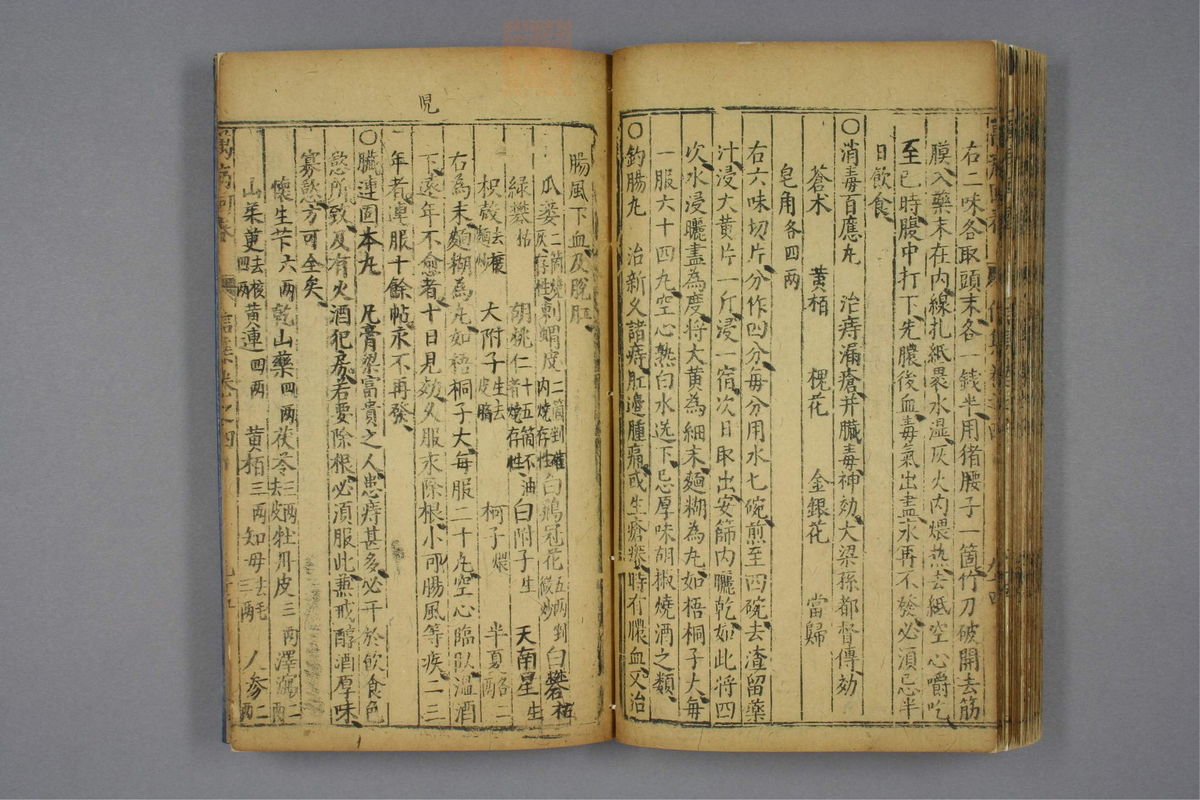 右二味各取頭末各一錢半用猪腰子一箇竹刀破開去筋
膜入藥末在内線扎紙褁水濕灰火内煨熱去紙空心嚼吃
至巳時腹中打下先膿後血毒氣出盡永再不發必須忌半
日飲食
〇消毒百應丸 治痔漏瘡并臟毒神効大梁孫都督傳効
蒼术 黄栢 槐花 金銀花 當歸
皂角各四兩
右六味切片分作四分每分用水七碗煎至四碗去渣留藥
汁浸大黄片一斤浸一宿次日取出安篩内曬乾如此將四
次水浸曬盡為度將大黄為細末麵糊為丸如梧桐子大每
一服六十四丸空心熱白水送下忌厚味胡椒燒酒之類
〇鈎腸丸 治新久諸痔肛邊腫痛或生瘡癢時有膿血又治
腸風下血及脫肛
瓜蔞二箇燒灰存性刺蝟皮二箇剉碎内燒存性白鷄冠花五兩剉微炒白礬枯
緑礬枯 胡桃仁十五箇不油者燒存性白附子生 天南星生
枳殼去穰麵炒 大附子生去皮臍 柯子煨 半夏各二兩
右為末麵糊為丸如梧桐子大每服二十丸空心臨臥溫酒
下遠年不愈者十日見効久服永除根小可腸風等疾二三
年者連服十餘帖永不再發
〇臟連固本丸 凡膏粱富貴之人患痔甚多必干於飲食色
慾所致及有火酒犯房若要除根必須服此兼戒醇酒厚味
寡慾方可全矣
懷生苄六兩乾山藥四兩茯苓三兩去皮牡丹皮三兩澤瀉二
山茱萸去核四兩黄連四兩 黄栢三兩知母去毛三兩 人參二兩
児